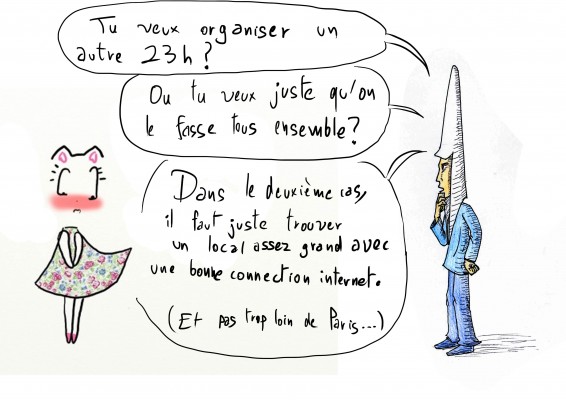 Tu veux organiser un
autre 23h?
Ou tu veux juste qu'on
le fasse tous ensemble?
Dans le deuxième cas,
il faut juste trouver
un local assez grand avec
une bonne connection internet.
(Et pas trop loin de Paris...)